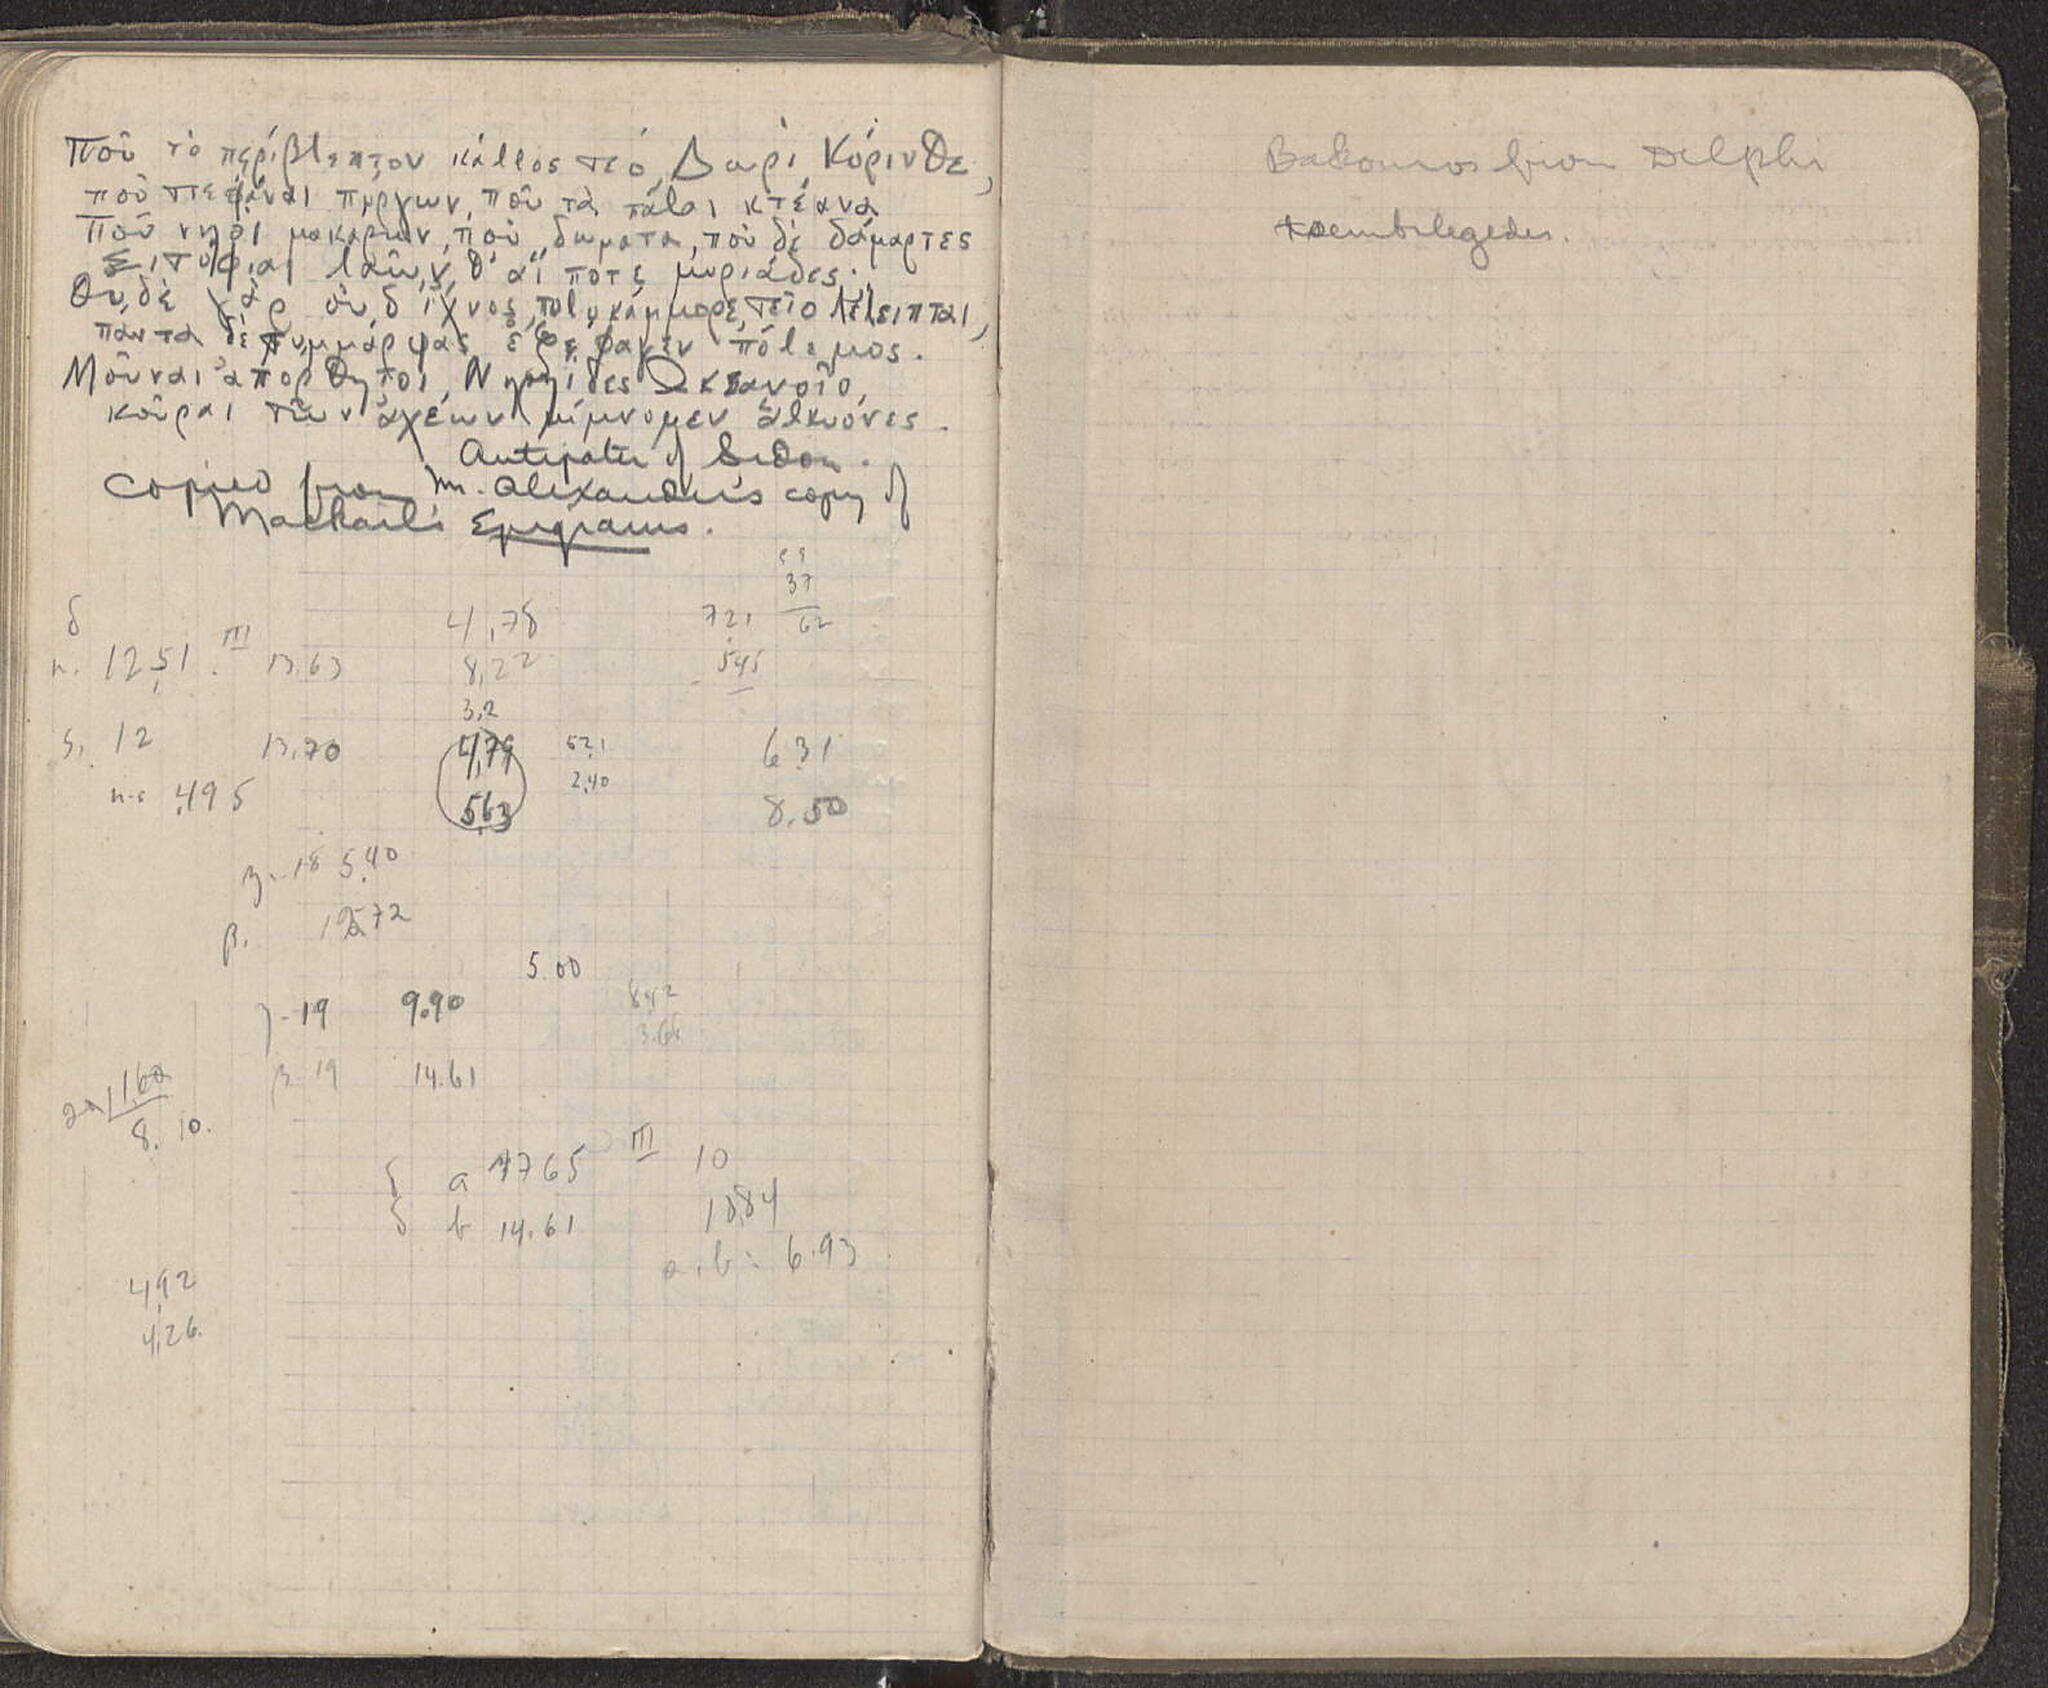 Ποῦ τὸ περίβλεπτον κάλλος σεό, Δωρὶ Κόρινθε,
ποῦ στεφάναι πύργων, ποῦ τὰ πάλαι κτέανα
Ποῦ νηοὶ μακάρων, ποῦ δώματα, ποῦ δὲ δάμαρτες
Σισύφιαι λαῶν θ' αἵ ποτε μυριάδες;
Οὐδὲ γὰρ οὐδ' ἴχνος, πολυκάμμορε, σεῖο λέλειπται,
πάντα δὲ συμμάρψας ἐξέφαγεν πόλεμος.
Μοῦναι ἀπόρθητοι Νηρηΐδες Ὠκεανοῖο,
κοῦραι σῶν ἀχέων μίμνομεν ἁλκυόνες.
Antipater of Sidon.
Copied from Mr. Alexander's copy of
Mackail's Epigrams.
37
δ 4,78 721 62
n. 12,51 III 13,63 8,22 545
3,2
s. 12 13,70 4,79 52,1 6.31
n-s 4,95 5,63 2,40 8.50
18 5.40
β.
5.00
19 9.90
β 19 14.61 3.64
8.10.
δ a III 10
δ b 14.61 10,84
a.b: 6.93
4,92
4,26.
from Delphi